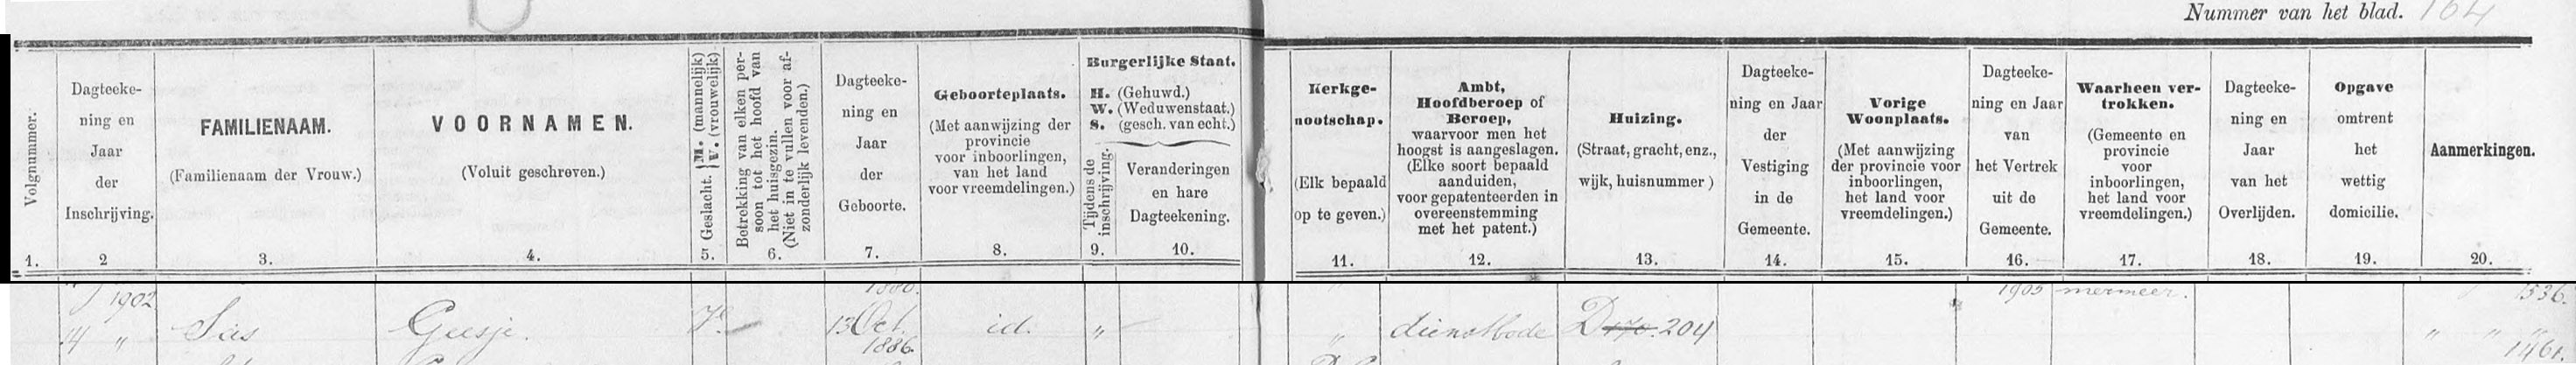 Nummer van het blad. 164
Volgnummer.
1.
Dagteeke-
ning en
Jaar
der
Inschrijving.
2
FAMILIENAAM.
(Familienaam der Vrouw.)
3.
VOORNAMEN.
(Voluit geschreven.)
4.
Geslacht. { M. (mannelijk)
V. (vrouwelijk)
5.
Betrekking van elken per-
soon tot het hoofd van
het huisgezin.
(Niet in te vullen voor af-
zonderlijk levenden.)
6.
Dagteeke-
ning en
Jaar
der
Geboorte.
7.
Geboorteplaats.
(Met aanwijzing der
provincie
voor inboorlingen,
van het land
voor vreemdelingen.)
8.
Burgerlijke Staat.
H. (Gehuwd.)
W. (Weduwenstaat.)
S. (gesch. van echt.)
Tijdens de
inschrijving.
9.
Veranderingen
en hare
Dagteekening.
10.
Kerkge-
nootschap.
(Elk bepaald
op te geven.)
11.
Ambt,
Hoofdberoep of
Beroep,
waarvoor men het
hoogst is aangeslagen.
(Elke soort bepaald
aanduiden,
voor gepatenteerden in
overeenstemming
met het patent.)
12.
Huizing.
(Straat, gracht, enz.,
wijk, huisnummer)
13.
Dagteeke-
ning en Jaar
der
Vestiging
in de
Gemeente.
14.
Vorige
Woonplaats.
(Met aanwijzing
der provincie voor
inboorlingen,
het land voor
vreemdelingen.)
15.
Dagteeke-
ning en Jaar
van
het Vertrek
uit de
Gemeente.
16.
Waarheen ver-
trokken.
(Gemeente en
provincie
voor
inboorlingen,
het land voor
vreemdelingen.)
17.
Dagteeke-
ning en
Jaar
van het
Overlijden.
18.
Opgave
omtrent
het
wettig
domicilie.
19.
Aanmerkingen.
20.
1902 1880. 1905 mermeer. 1536.
14 " Sas Geesje. V. 13 Oct. id. " " dienstbode D 170. 204 " " "
1886. 1461.